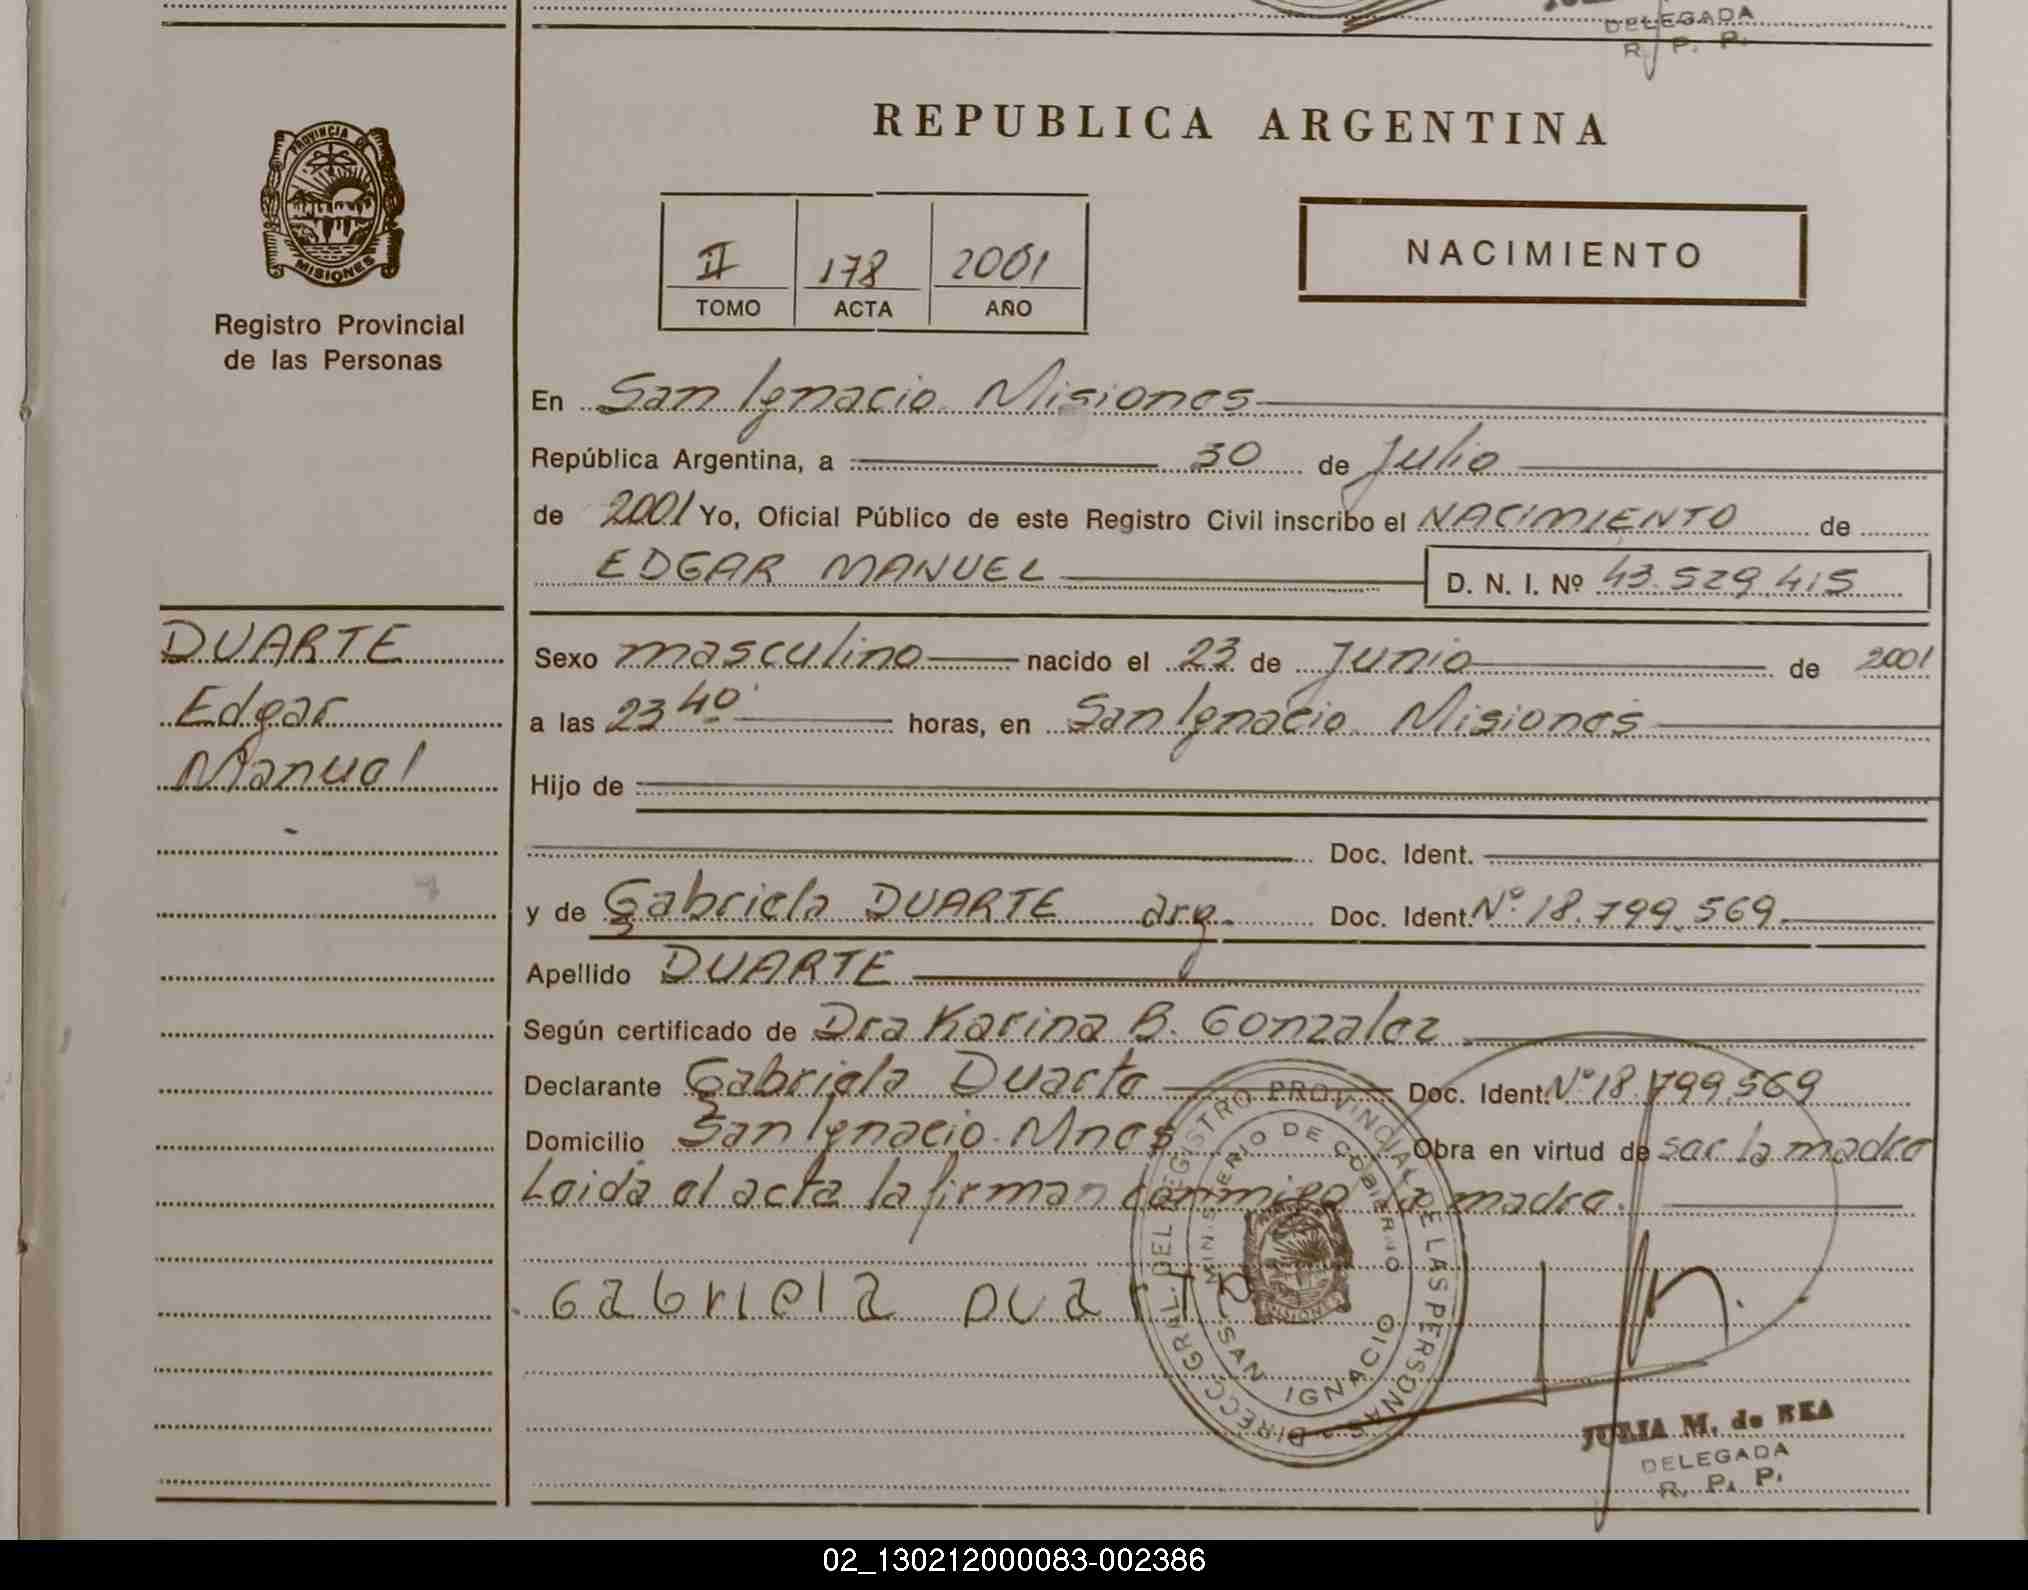 DELEGADA
R. P. P.
REPUBLICA ARGENTINA
PROVINCIA DE
MISIONES
Registro Provincial
de las Personas
II 178 2001
TOMO ACTA AÑO
NACIMIENTO
En San Ignacio Misiones
República Argentina, a 30 de Julio
de 2001 Yo, Oficial Público de este Registro Civil inscribo el NACIMIENTO de
EDGAR MANUEL D. N. I. Nº 43.529.415
DUARTE
Edgar
Manuel
Sexo masculino nacido el 23 de Junio de 2001
a las 23 40 horas, en San Ignacio Misiones
Hijo de
Doc. Ident.
y de Gabriela DUARTE arg. Doc. Ident. Nº 18.799.569
Apellido DUARTE
Según certificado de Dra Karina B. Gonzalez
Declarante Gabriela Duarte Doc. Ident. Nº 18.799.569
Domicilio San Ignacio Mnes Obra en virtud de ser la madre
Leida el acta la firman conmigo la madre.
Gabriela Duarte
DIRECC. GRAL. DEL REGISTRO PROVINCIAL DE LAS PERSONAS
MINISTERIO DE GOBIERNO
MISIONES
SAN IGNACIO
JULIA M. de REA
DELEGADA
R. P. P.
02_130212000083-002386